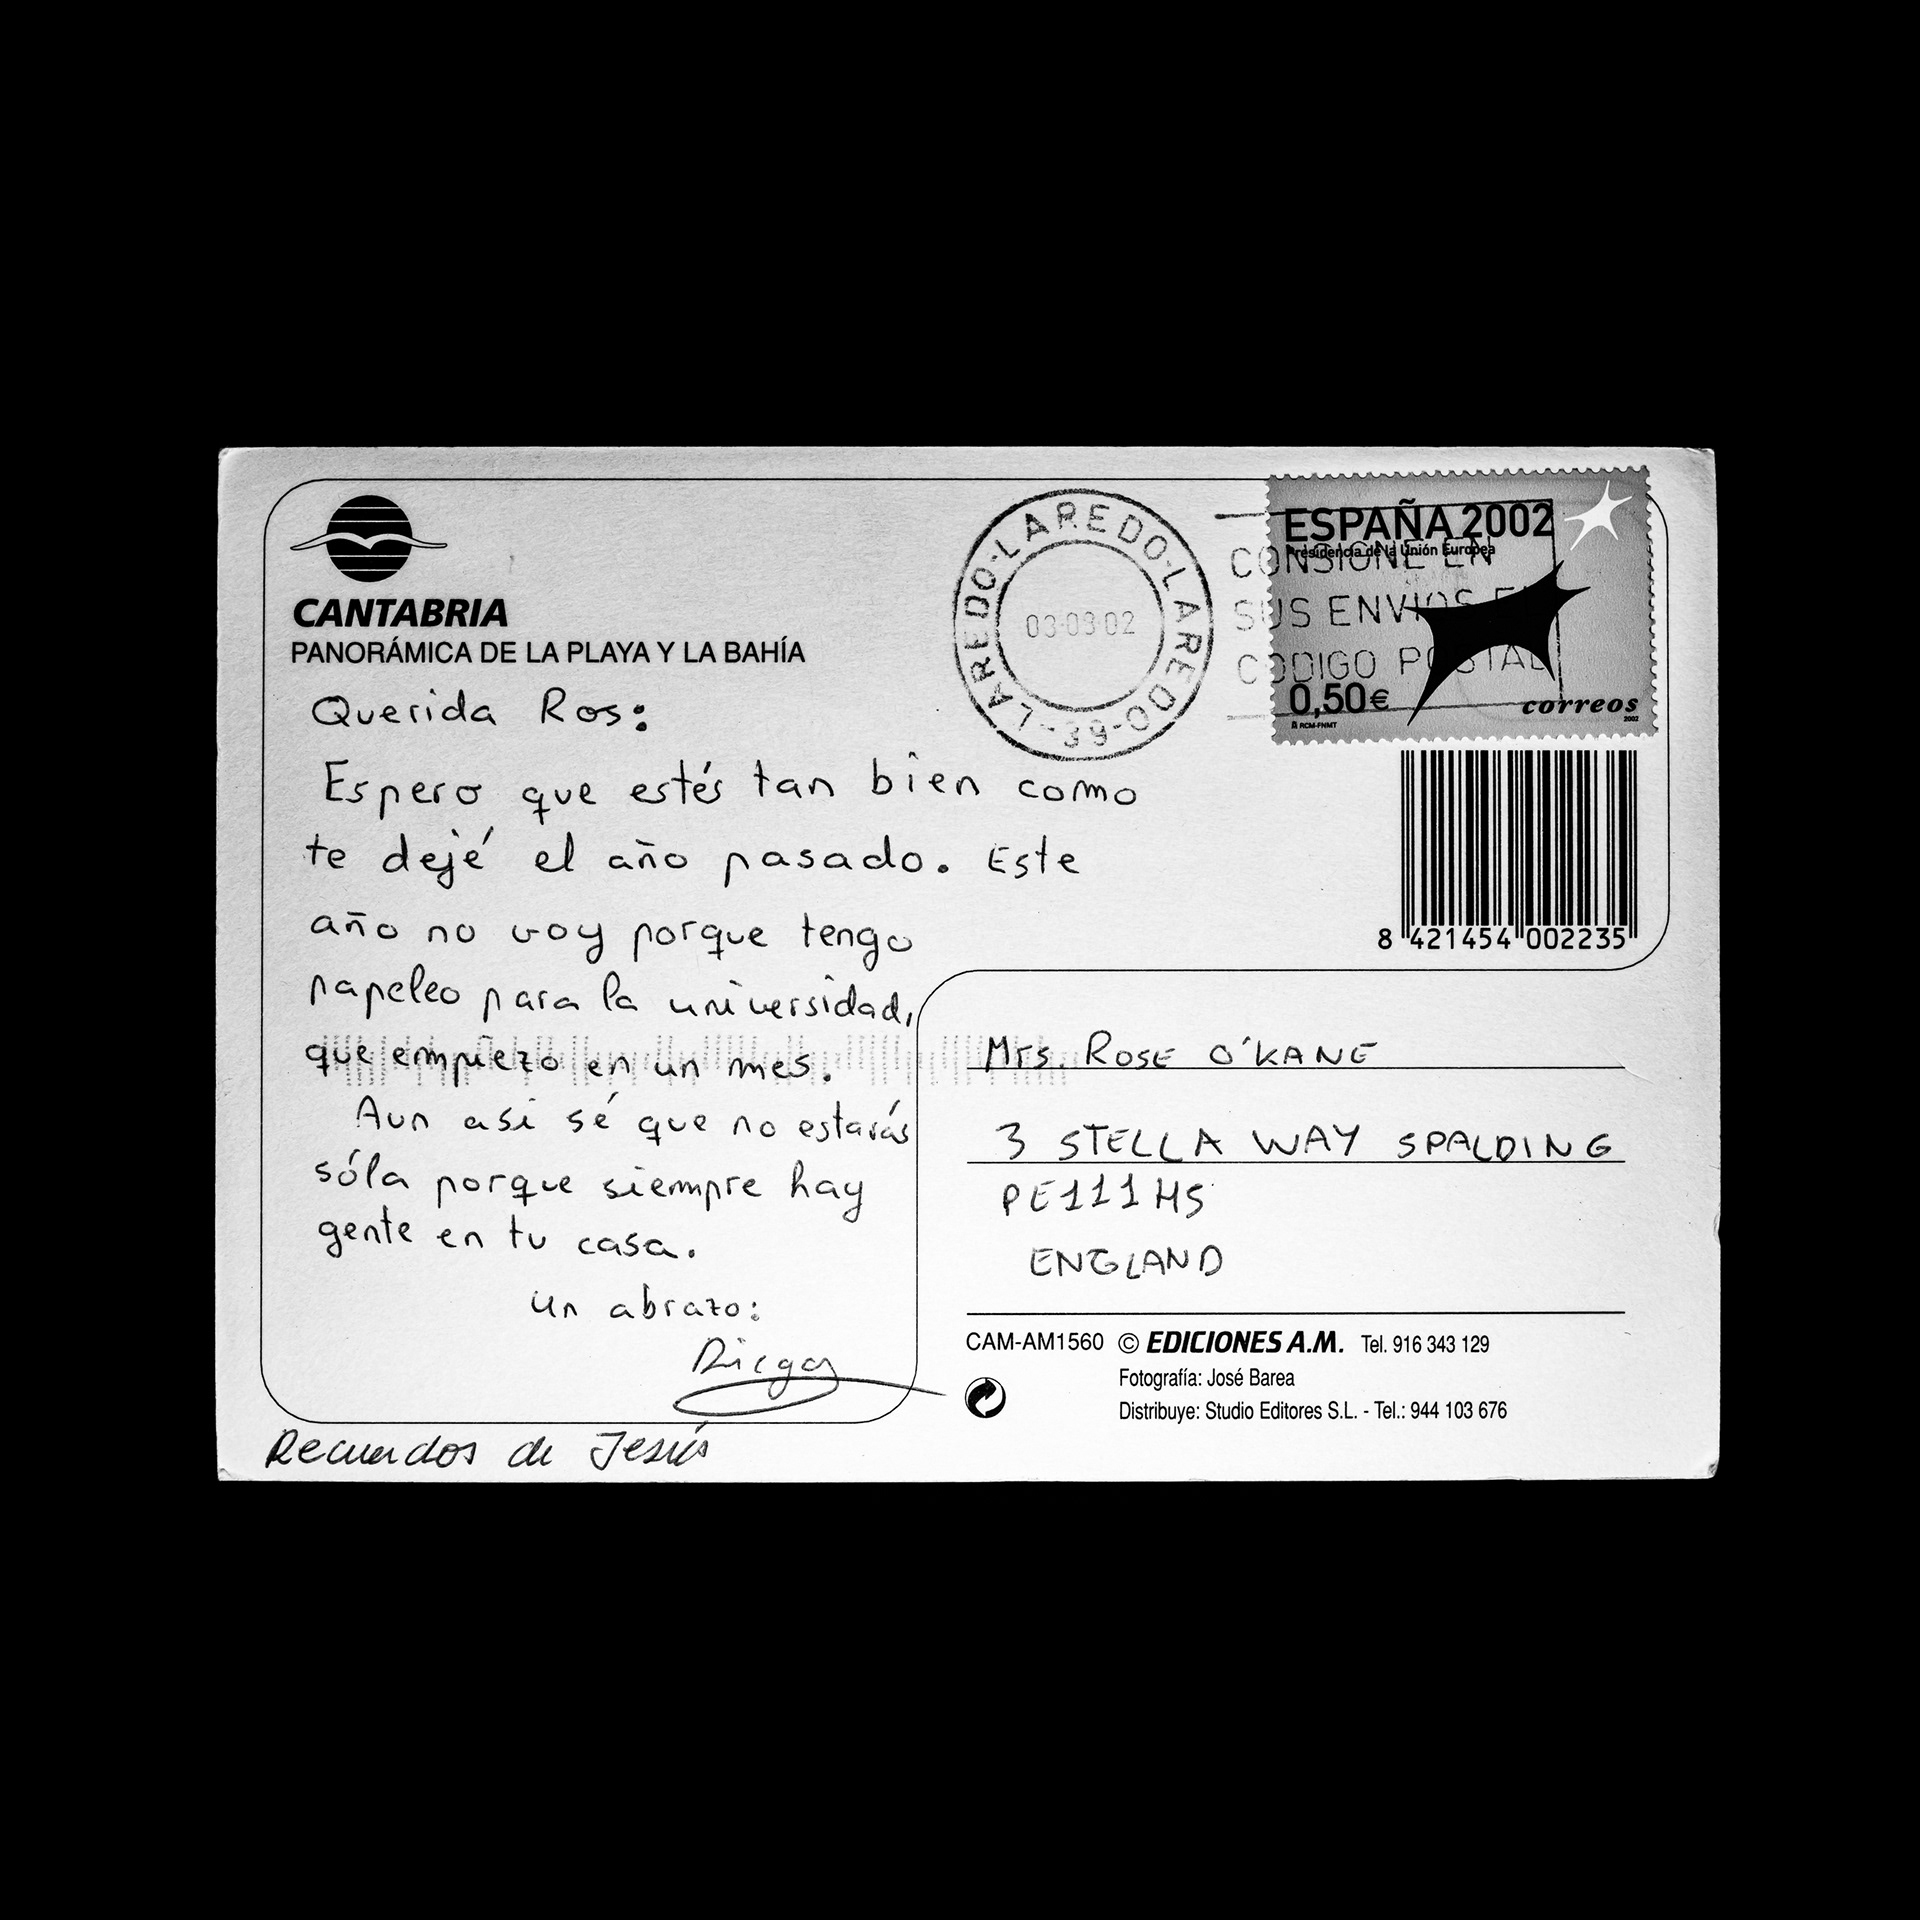 CANTABRIA
PANORÁMICA DE LA PLAYA Y LA BAHÍA
Querida Ros:
Espero que estés tan bien como
te dejé el año pasado. Este
año no voy porque tengo
papeleo para la universidad,
que empiezo en un mes.
Aun asi sé que no estarás
sóla porque siempre hay
gente en tu casa.
un abrazo:
Diego
Recuerdos de Jesús
LAREDO-LAREDO-LAREDO-LAREDO-39-
03-09-02
CONSIGNE EN
SUS ENVIOS EL
CODIGO POSTAL
ESPAÑA 2002
Presidencia de la Unión Europea
0,50€
RCM-FNMT
correos
2002
8 421454 002235
Mrs. ROSE O'KANE
3 STELLA WAY SPALDING
PE111HS
ENGLAND
CAM-AM1560 © EDICIONES A.M. Tel. 916 343 129
Fotografía: José Barea
Distribuye: Studio Editores S.L. - Tel.: 944 103 676